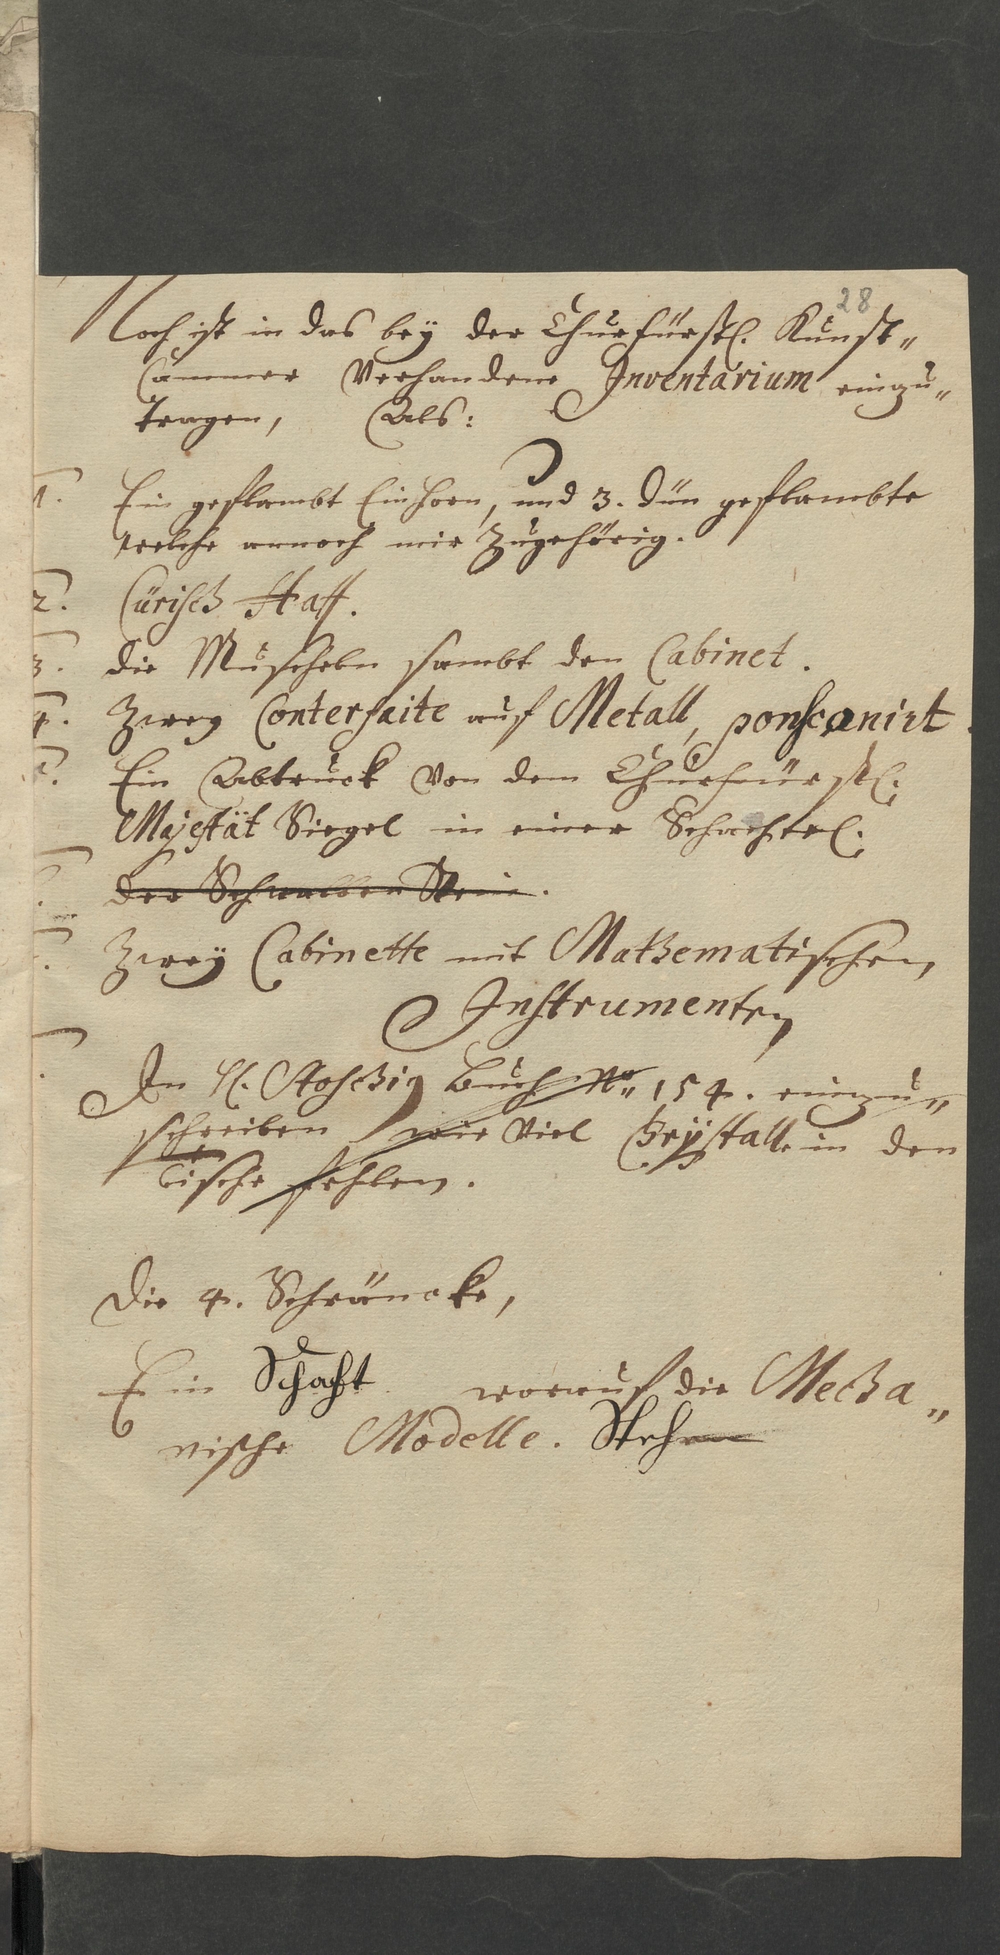 28
Noch ist in das bey der Churfürstl. Kunst„
Cammer Verhandene Inventarium einzu„
tragen, Als:
1. Ein geflambt Einhorn, und 3. dün geflambte
welche annoch mir zugehörig.
2. Cürisch Haff.
3. Die Muscheln sambt den Cabinet.
4. Zwey Conterfaite auf Metall,
Ein Abtruck von dem Churfürstl.
Majestät Siegel in einer Schachtel.
Der Schwalben Stein.
Zwey Cabinette mit Mathematischen
Instrumenten
In H. Stoschig Buch No 154. einzu„
schreiben wie viel Chrystalle in den
tische fehlen.
Die 4. Schräncke,
Ein Schaft worauf die Mecha„
nische Modelle. Stehen